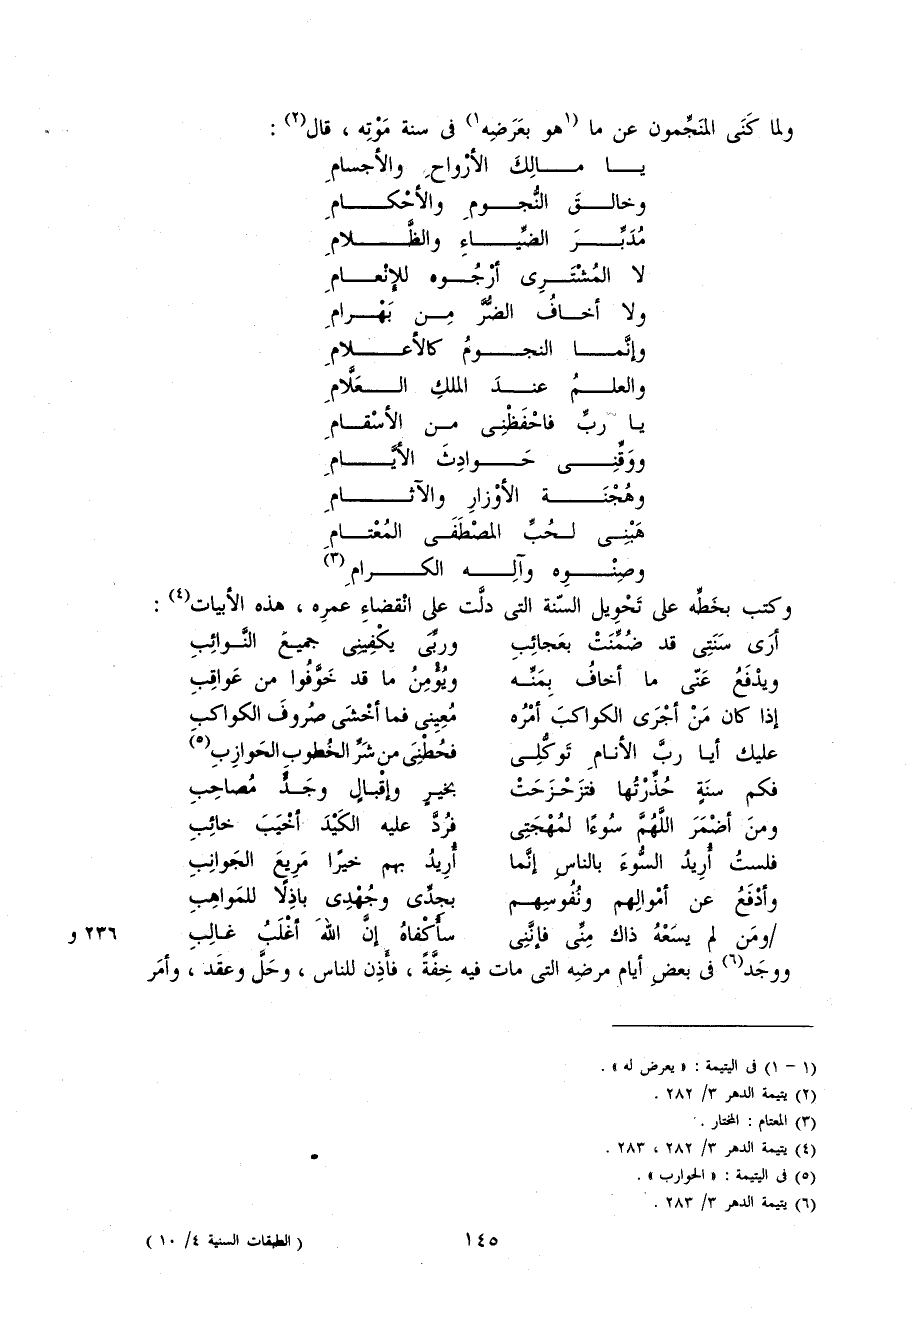 ولما كَنَى المنَجِّمون عن ما (١هو بعَرَضِه١) فى سنة مَوْتِه ، قال(٢) :
يــا مــالِكَ الأرْواحِ والأجسامِ
وخالــقَ النُّجــومِ والأحْكــامِ
مُدَبِّــرَ الضِّيــاءِ والظَّــلامِ
لا المُشْتَــرِى أرْجُــوه للإنْعــامِ
ولا أخــافُ الضُّرَّ مِــن بَهْــرامِ
وإنَّمــا النجــومُ كالأعْــلامِ
والعلــمُ عنــدَ الملكِ العَــلَّامِ
يــا ربِّ فاحْفَظْنِى مــن الأسْقــامِ
ووَقِّنِــى حَــوادِثَ الأيَّــامِ
وهُجْنَــة الأوْزارِ والآثــامِ
هَبْنِــى لــحُبِّ المصْطَفَــى المُعْتــامِ
وصِنْــوِه وآلِــه الكــرامِ(٣)
وكتب بخَطِّه على تَحْوِيل السّنة التى دلَّت على انْقضاءِ عمرِه ، هذه الأبيات(٤) :
أرَى سَنَتِى قد ضُمِّنَتْ بعَجائبِ وربِّى يكْفِينِى جميعَ النَّوائبِ
ويدْفَعُ عَنّى ما أخافُ بِمَنِّــه ويُؤْمِنُ ما قد خَوَّفُوا من عَواقِبِ
إذا كان مَنْ أجْرَى الكواكبَ أمْرُه مُعِينِى فما أخْشَى صُروفَ الكواكبِ
عليك أيــا ربَّ الأنــامِ تَوكُّلِــى فحُطْنِىَ من شَرِّ الخُطوبِ الحَوازِبِ(٥)
فكم سنَةٍ حُذِّرْتُها فتزَحْزَحَتْ بخيرٍ وإقْبالٍ وجَــدٍّ مُصاحِبِ
ومَن أضْمَرَ اللَّهُمَّ سُوءًا لمُهْجَتِى فرُدَّ عليه الكَيْدَ أخْيَبَ خائبِ
فلستُ أُريدُ السُّوءَ بالناسِ إنَّما أُريدُ بهم خيرًا مَرِيعَ الجَوانِبِ
وأدْفَعُ عن أمْوالِهم ونُفُوسِهــم بجِدِّى وجُهْدِى باذِلًا للمَواهبِ
/ومَن لم يسَعْهُ ذاك مِنِّى فإنَّنِى سأُكْفاهُ إنَّ اللهَ أغْلَبُ غــالِبِ ٢٣٦ و
ووجَد(٦) فى بعضِ أيام مرضِه التى مات فيه خِفَّةً ، فأَذِن للناس ، وحَلَّ وعقَد ، وأمَر
(١ - ١) فى اليتيمة : « يعرض له » .
(٢) يتيمة الدهر ٣/ ٢٨٢ .
(٣) المعتام : المختار .
(٤) يتيمة الدهر ٣/ ٢٨٢ ، ٢٨٣ .
(٥) فى اليتيمة : « الحوارب » .
(٦) يتيمة الدهر ٣/ ٢٨٣ .
١٤٥ ( الطبقات السنية ٤/ ١٠ )